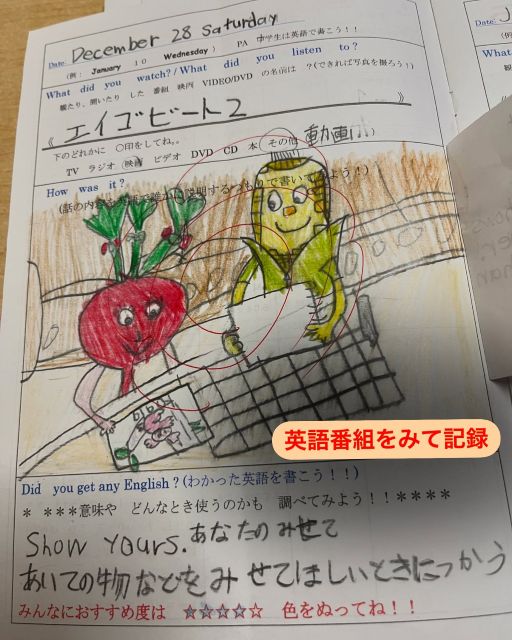 Date: December 28 Saturday
(例： January 10 Wednesday) PA 中学生は英語で書こう！！
What did you watch?/What did you listen to?
観たり、聞いたり した 番組 映画 VIDEO/DVD の名前は ？(できれば写真を撮ろう！)
《 エイゴビート2 》
下のどれかに ○印をしてね。。
TV ラジオ (映画 ビデオ DVD CD 本 (その他 動画
How was it?
Did you get any English？(わかった英語を書こう！！)
＊ ＊＊＊意味や どんなとき使うのかも 調べてみよう！！＊＊＊＊
Show yours. あなたのみせて
あいての物などをみせてほしいときにつかう
みんなにおすすめ度は ☆☆☆☆☆ 色をぬってね！！
英語番組をみて記録